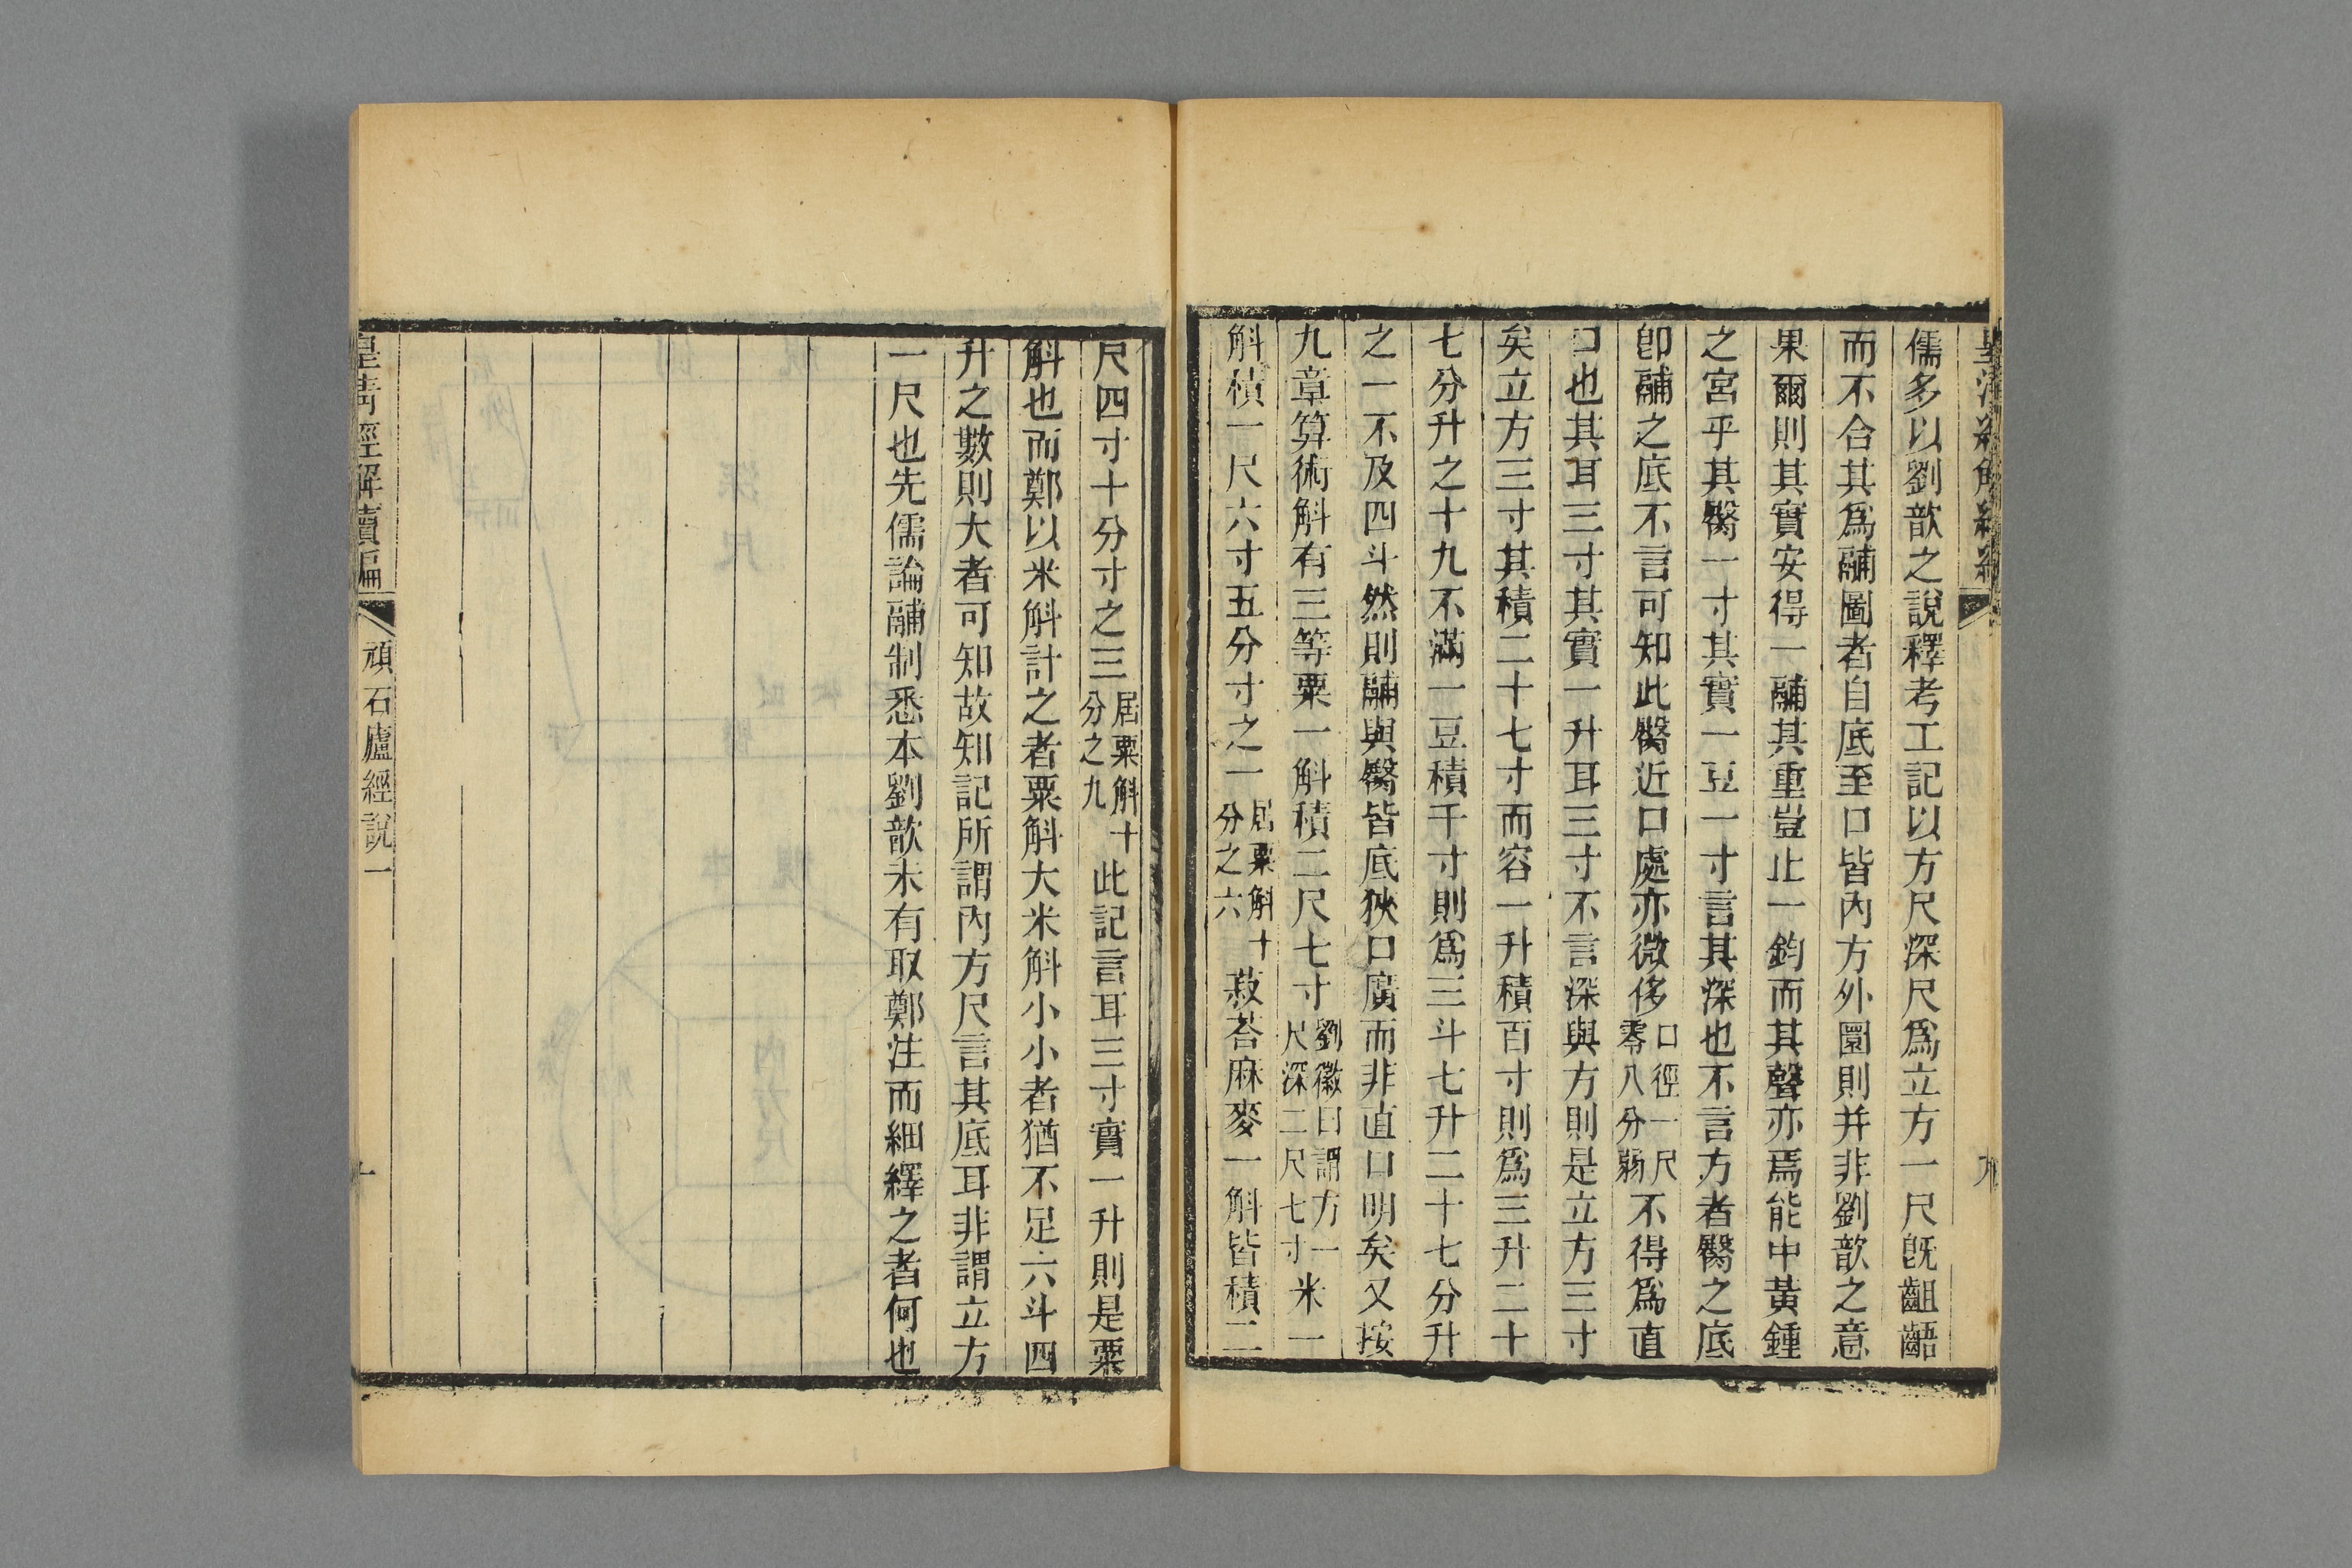 儒多以劉歆之說釋考工記以方尺深尺爲立方一尺旣齟齬
而不合其爲鬴圖者自底至口皆內方外圜則并非劉歆之意
果爾則其實安得一鬴其重豈止一鈞而其聲亦焉能中黃鍾
之宮乎其臋一寸其實一豆一寸言其深也不言方者臋之底
卽鬴之底不言可知此臋近口處亦微侈口徑一尺零八分弱不得爲直
口也其耳三寸其實一升耳三寸不言深與方則是立方三寸
矣立方三寸其積二十七寸而容一升積百寸則爲三升二十
七分升之十九不滿一豆積千寸則爲三斗七升二十七分升
之一不及四斗然則鬴與臋皆底狹口廣而非直口明矣又按
九章算術斛有三等粟一斛積二尺七寸劉徽曰謂方一尺深二尺七寸米一
斛積一尺六寸五分寸之一居粟斛十分之六菽荅麻麥一斛皆積二
尺四寸十分寸之三居粟斛十分之九此記言耳三寸實一升則是粟
斛也而鄭以米斛計之者粟斛大米斛小小者猶不足六斗四
升之數則大者可知故知記所謂內方尺言其底耳非謂立方
一尺也先儒論鬴制悉本劉歆未有取鄭注而細繹之者何也
皇清經解續編
頑石廬經說一
十